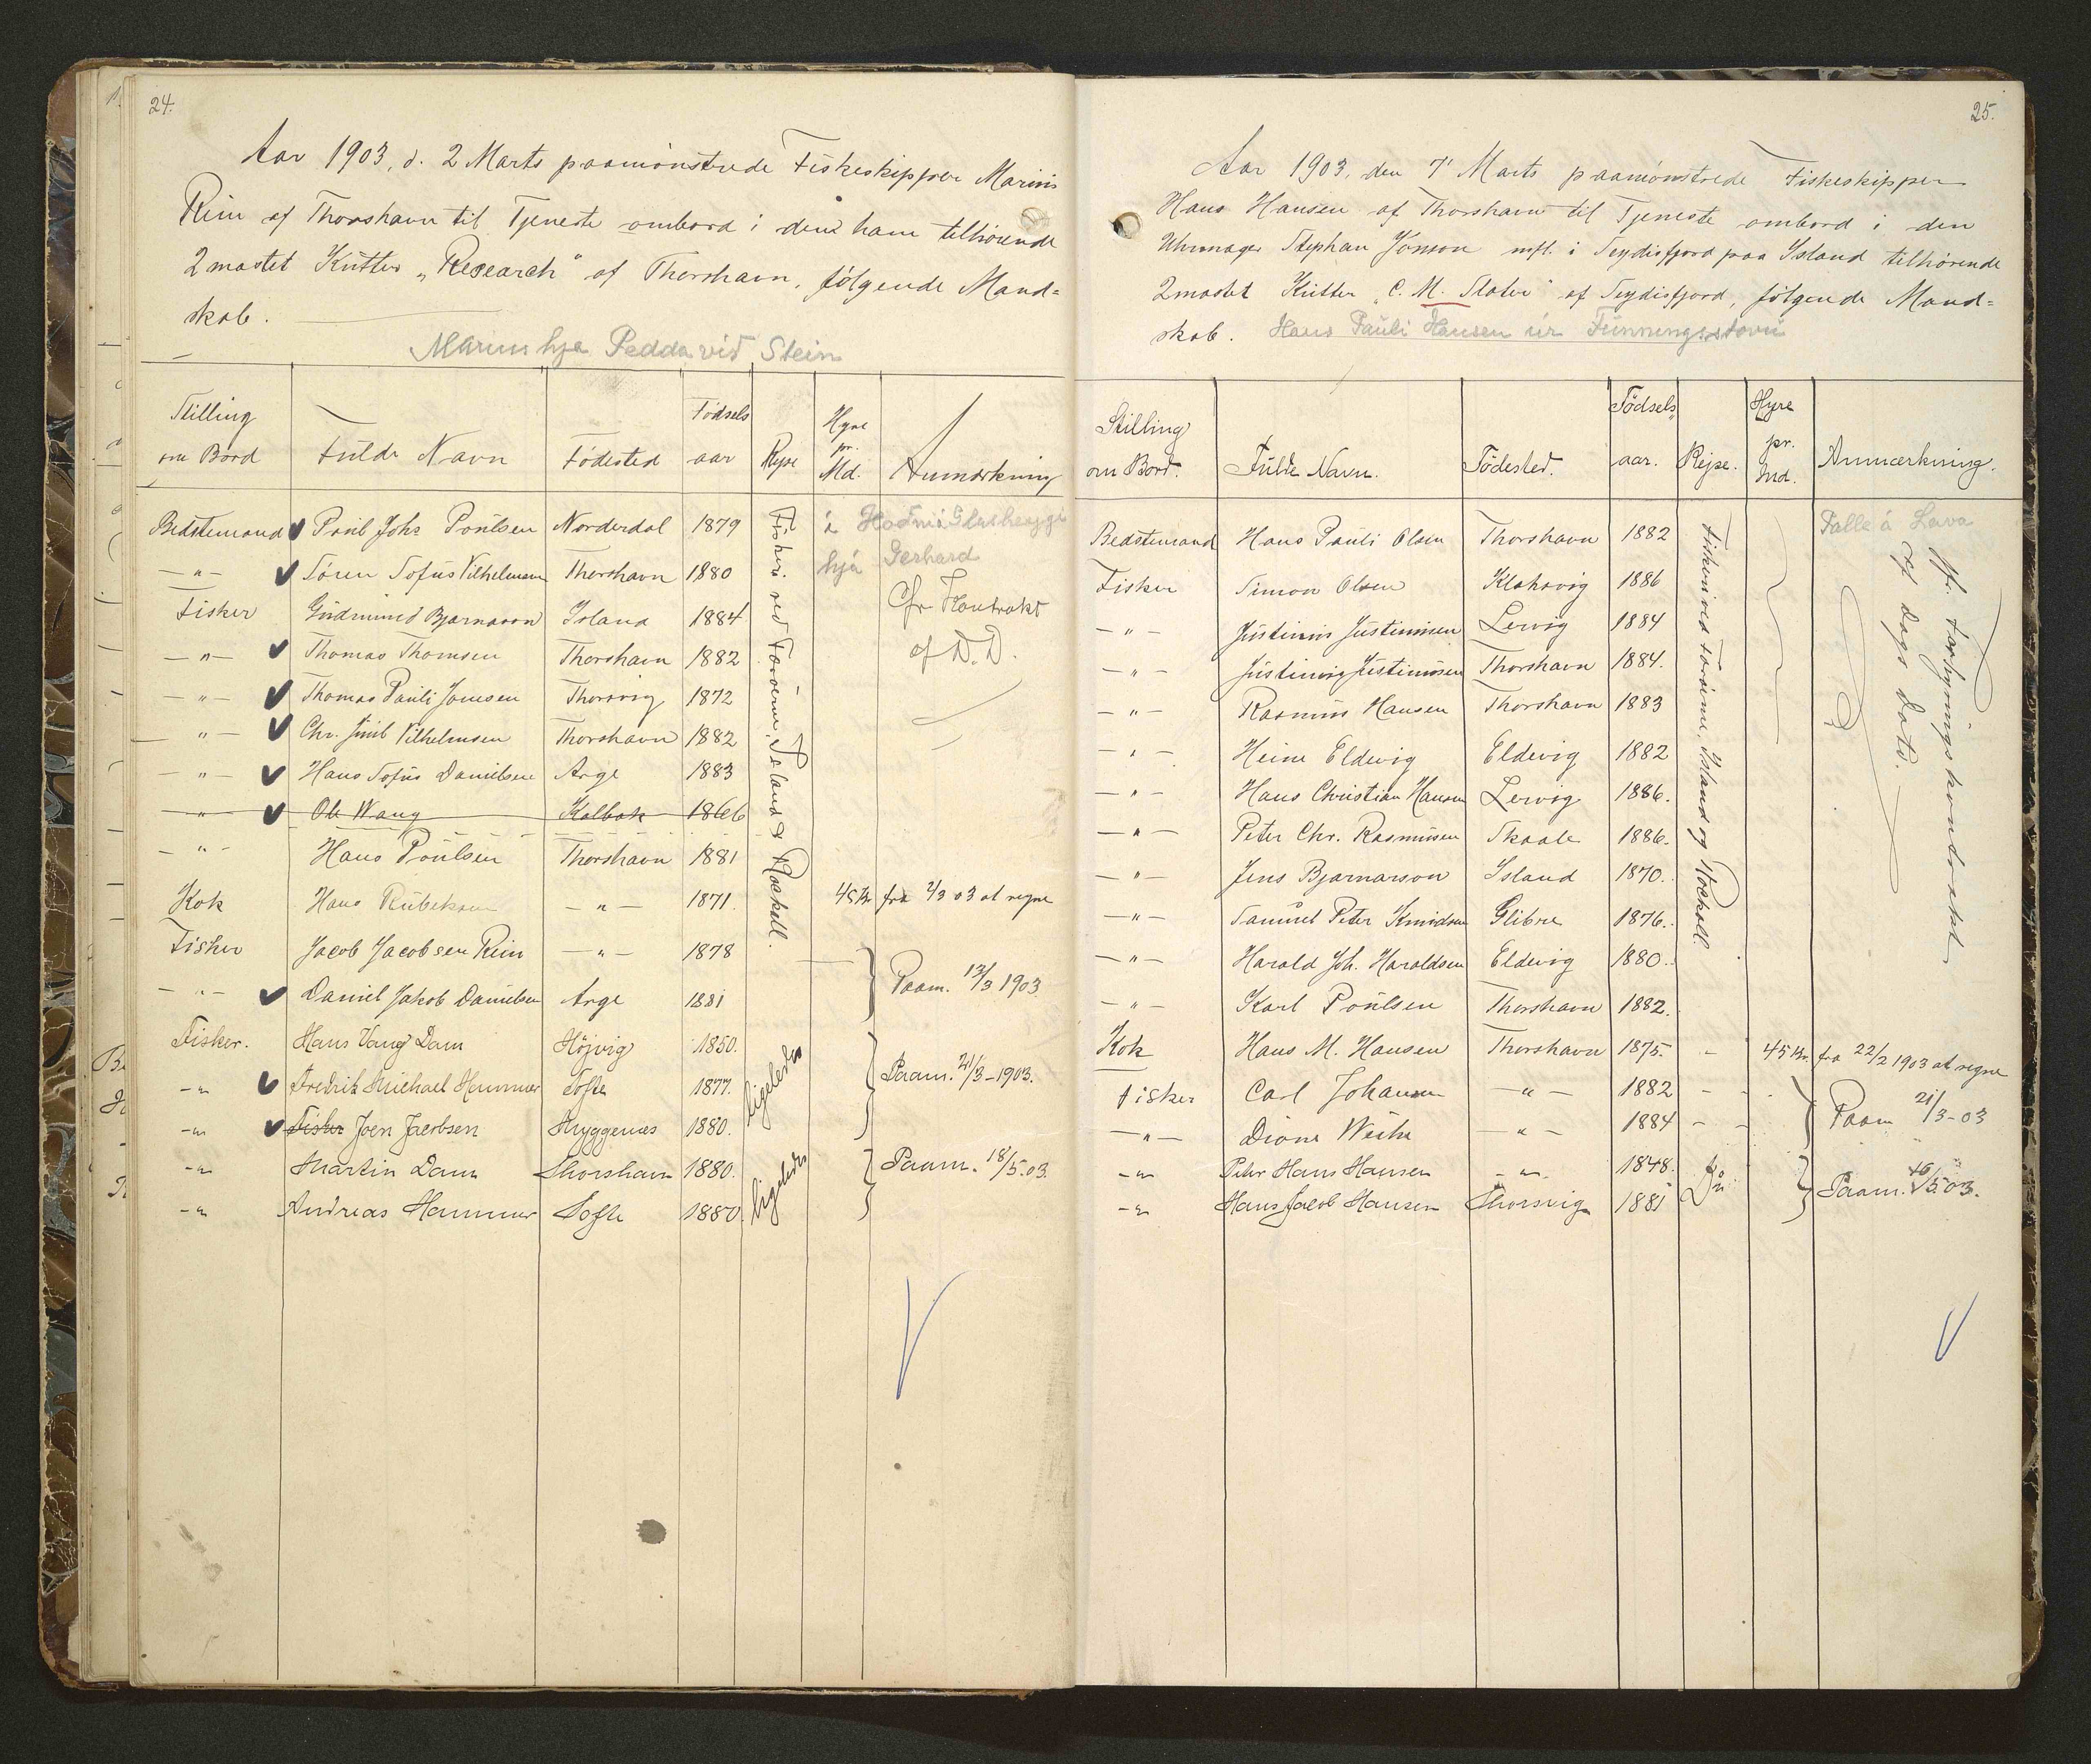 24.
Aar 1903, d. 2 Marts paamønstrede Fiskeskipper Marius
Rein af Thorshavn til Tjeneste ombord i den ham tilhørende
2 mastet Kutter „Research“ af Thorshavn, følgende Mand=
skab.
Marius hjá Pedda við Stein
Stilling om Bord | Fulde Navn | Fødested | Fødsels aar | Rejse | Hyre pr. Md. | Anmærkning
Bedstemand Poul Johs Poulsen Norderdal 1879 á Hodni á Glasheyggi
—"— Søren Sofus Vilhelmsen Thorshavn 1880 hjá Gerhard
Fisker Gudmund Bjarnason Island 1884 Cfr Kontrakt
—"— Thomas Thomsen Thorshavn 1882 af D. D.
—"— Thomas Pauli Joensen Thorsvig 1872
—"— Chr. Juul Vilhelmsen Thorshavn 1882
—"— Hans Sofus Danielsen Arge 1883
—"— Ole Wang Kolbak 1866
—"— Hans Poulsen Thorshavn 1881
Kok Hans Rubeksen —"— 1871. 45 Kr fra 2/3 03 at regne
Fisker Jacob Jacobsen Rein —"— 1878
—"— Daniel Jakob Danielsen Arge 1881 Paam. 13/3 1903
Fisker. Hans Vang Dam Højvig 1850.
—"— Fredrik Michael Hammer Tofte 1877. Paam. 21/3-1903.
—"— Fisker Joen Jacobsen Hyggenæs 1880.
—"— Martin Dam Thorshavn 1880. Paam. 18/5.03.
—"— Andreas Hammer Tofte 1880.
Fiskeri ved Færøerne, Island & Rockall.
ligeledes
ligeledes
25.
Aar 1903, den 7' Marts paamønstrede Fiskeskipper
Hans Hansen af Thorshavn til Tjeneste ombord i den
Uhrmager Stephan Jonson mfl. i Seydisfjord paa Island tilhørende
2mastet Kutter „C. M. Slater“ af Seydisfjord, følgende Mand=
skab. Hans Pauli Hansen úr Funningsstovu
Stilling om Bord. | Fulde Navn. | Fødested. | Fødsels aar. | Rejse. | Hyre pr. Md. | Anmærkning.
Bedstemand Hans Pauli Olsen Thorshavn 1882 Palle á Lava
Fisker Simon Olsen Klaksvig 1886
—"— Justinus Justinusen Lervig 1884
—"— Justinus Justinusen Thorshavn 1884.
—"— Rasmus Hansen Thorshavn 1883
—"— Heine Eldevig Eldevig 1882
—"— Hans Christian Hansen Lervig 1886.
—"— Peter Chr. Rasmussen Skaale 1886.
—"— Jens Bjarnarson Island 1870.
—"— Samuel Peter Knudsen Glibre 1876.
—"— Harald Joh. Haraldsen Eldevig 1880.
—"— Karl Poulsen Thorshavn 1882.
Kok Hans M. Hansen Thorshavn 1875. " 45 Kr. fra 22/2 1903 at regne
Fisker Carl Johansen —"— 1882
—"— Dione Weihe —"— 1884 Paam 21/3-03
—"— Peter Hans Hansen —"— 1848.
—"— Hans Jacob Hansen Thorsvig 1881 Do Paam. 16/5.03.
Fiskeri ved Færøerne, Island og Rockall.
Cfr. Forhyringskontrakt
af Dags Dato.